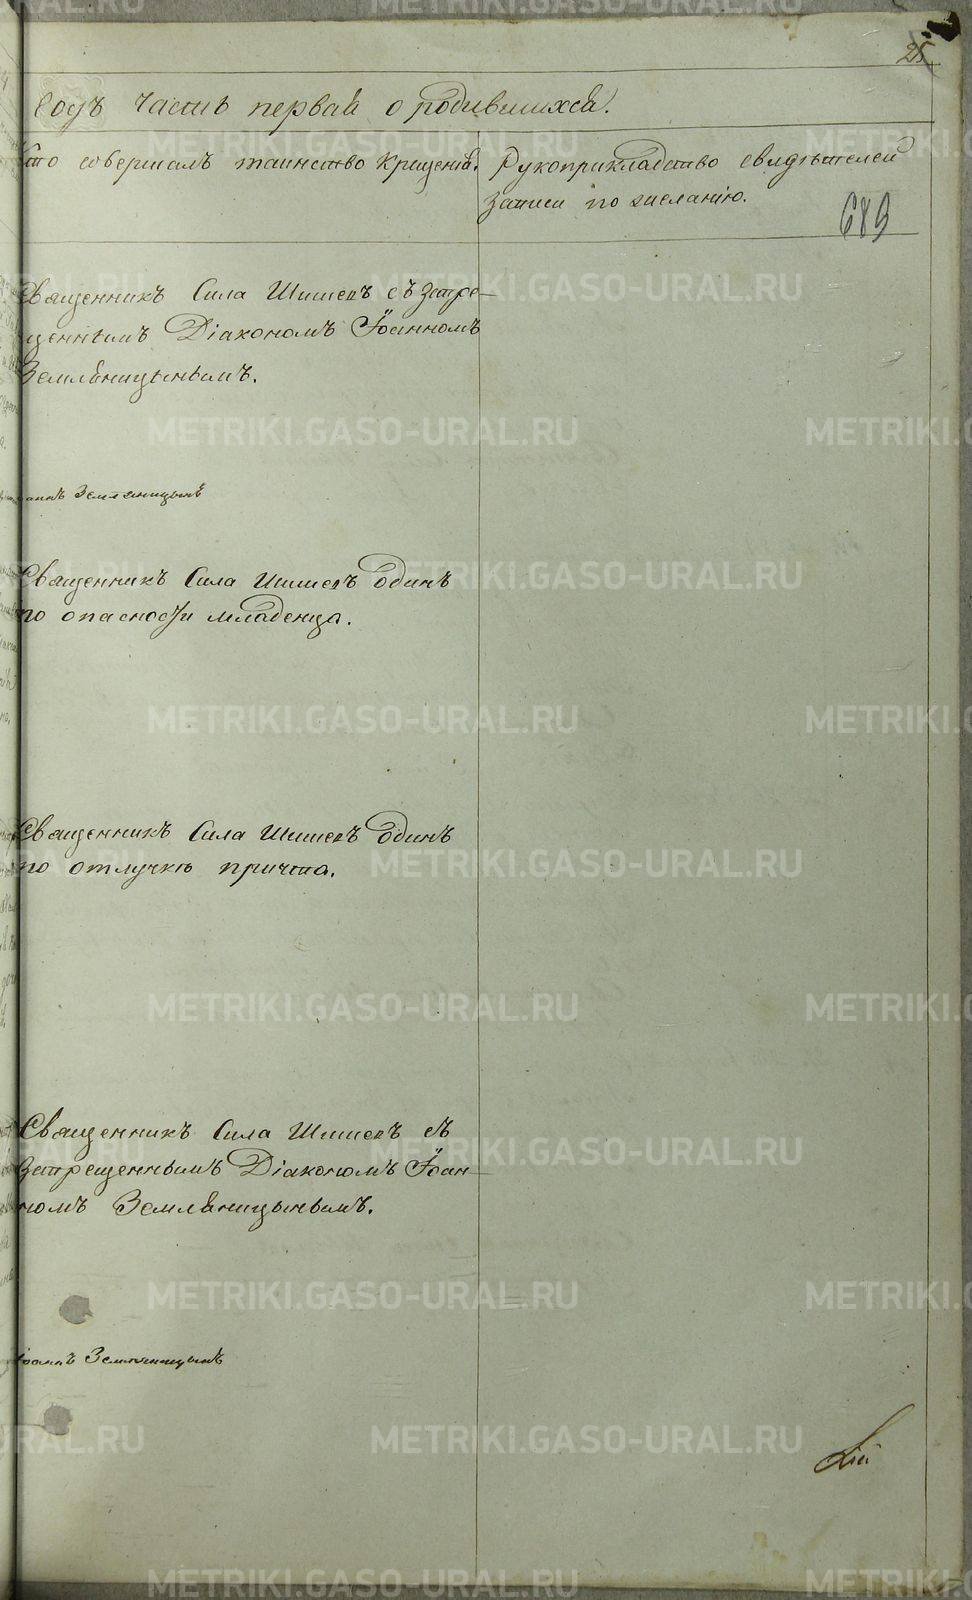 25
годъ часть первая о родившихся.
Кто совершалъ таинство крещенія.
Рукоприкладство свидѣтелей
записи по желанію.
689
Священникъ Сила Шишевъ съ запре-
щеннымъ Діакономъ Іоанномъ
Земляницынымъ.
Земляницынъ
Священникъ Сила Шишевъ одинъ
по опасности младенца.
Священникъ Сила Шишевъ одинъ
по отлучкѣ причта.
Священникъ Сила Шишевъ съ
запрещеннымъ Діакономъ Іоан-
номъ Земляницынымъ.
Іоаннъ Земляницынъ
METRIKI.GASO-URAL.RU